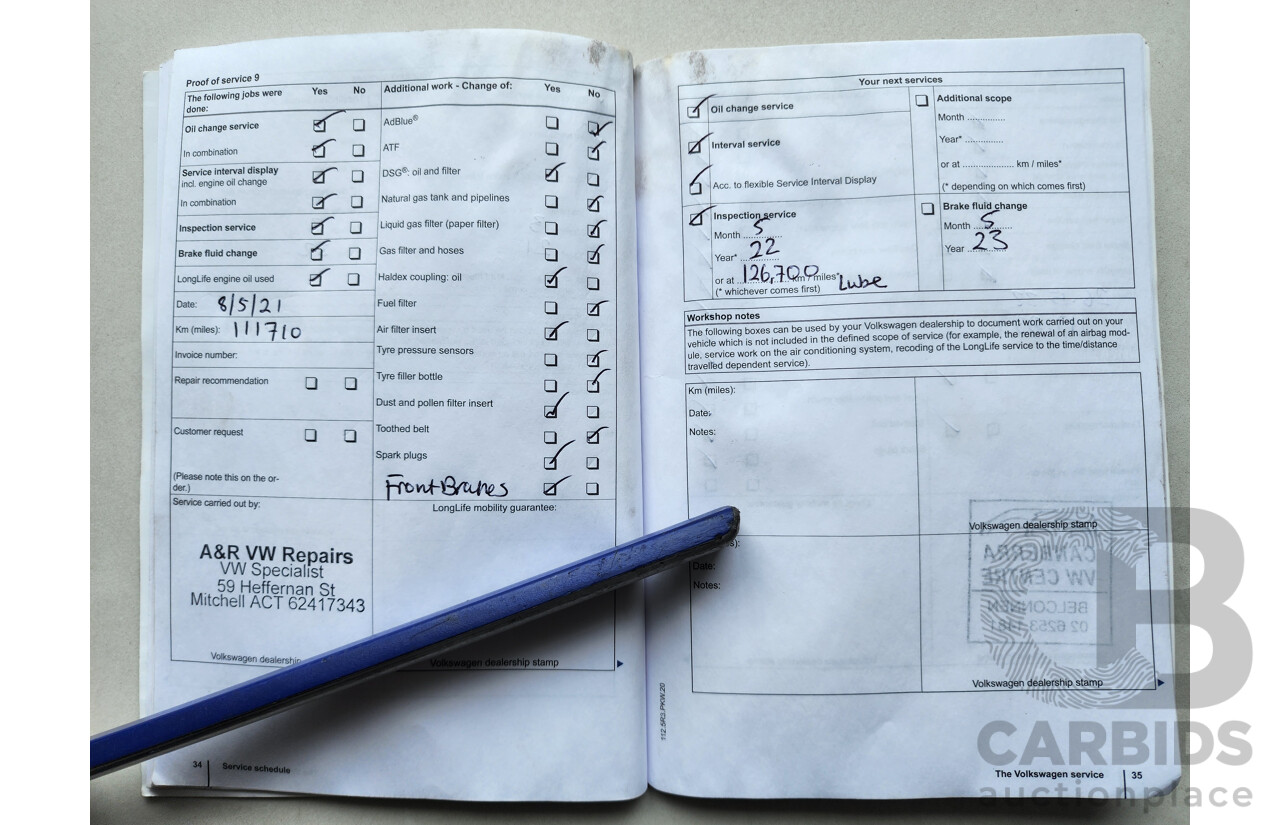 Proof of service 9
The following jobs were done: Yes No
Oil change service
In combination
Service interval display
incl. engine oil change
In combination
Inspection service
Brake fluid change
LongLife engine oil used
Date: 8/5/21
Km (miles): 111710
Invoice number:
Repair recommendation
Customer request
(Please note this on the or-
der.)
Service carried out by:
A&R VW Repairs
VW Specialist
59 Heffernan St
Mitchell ACT 62417343
Volkswagen dealership
Additional work - Change of: Yes No
AdBlue®
ATF
DSG®: oil and filter
Natural gas tank and pipelines
Liquid gas filter (paper filter)
Gas filter and hoses
Haldex coupling: oil
Fuel filter
Air filter insert
Tyre pressure sensors
Tyre filler bottle
Dust and pollen filter insert
Toothed belt
Spark plugs
Front Brakes
LongLife mobility guarantee:
Volkswagen dealership stamp
34 Service schedule
Your next services
Oil change service
Interval service
Acc. to flexible Service Interval Display
Inspection service
Month 5
Year* 22
or at 126,700 km / miles* Lube
(* whichever comes first)
Additional scope
Month ..............
Year* ..............
or at .................... km / miles*
(* depending on which comes first)
Brake fluid change
Month 5
Year 23
Workshop notes
The following boxes can be used by your Volkswagen dealership to document work carried out on your
vehicle which is not included in the defined scope of service (for example, the renewal of an airbag mod-
ule, service work on the air conditioning system, recoding of the LongLife service to the time/distance
travelled dependent service).
Km (miles):
Date:
Notes:
Volkswagen dealership stamp
Date:
Notes:
CANBERRA
VW CENTRE
BELCONNEN
Volkswagen dealership stamp
112.5R3.PKW.20
The Volkswagen service 35
B
CARBIDS
auctionplace